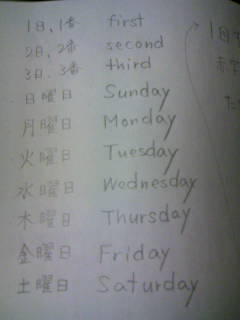 1日,1番 first
2日,2番 second
3日,3番 third
日曜日 Sunday
月曜日 Monday
火曜日 Tuesday
水曜日 Wednesday
木曜日 Thursday
金曜日 Friday
土曜日 Saturday